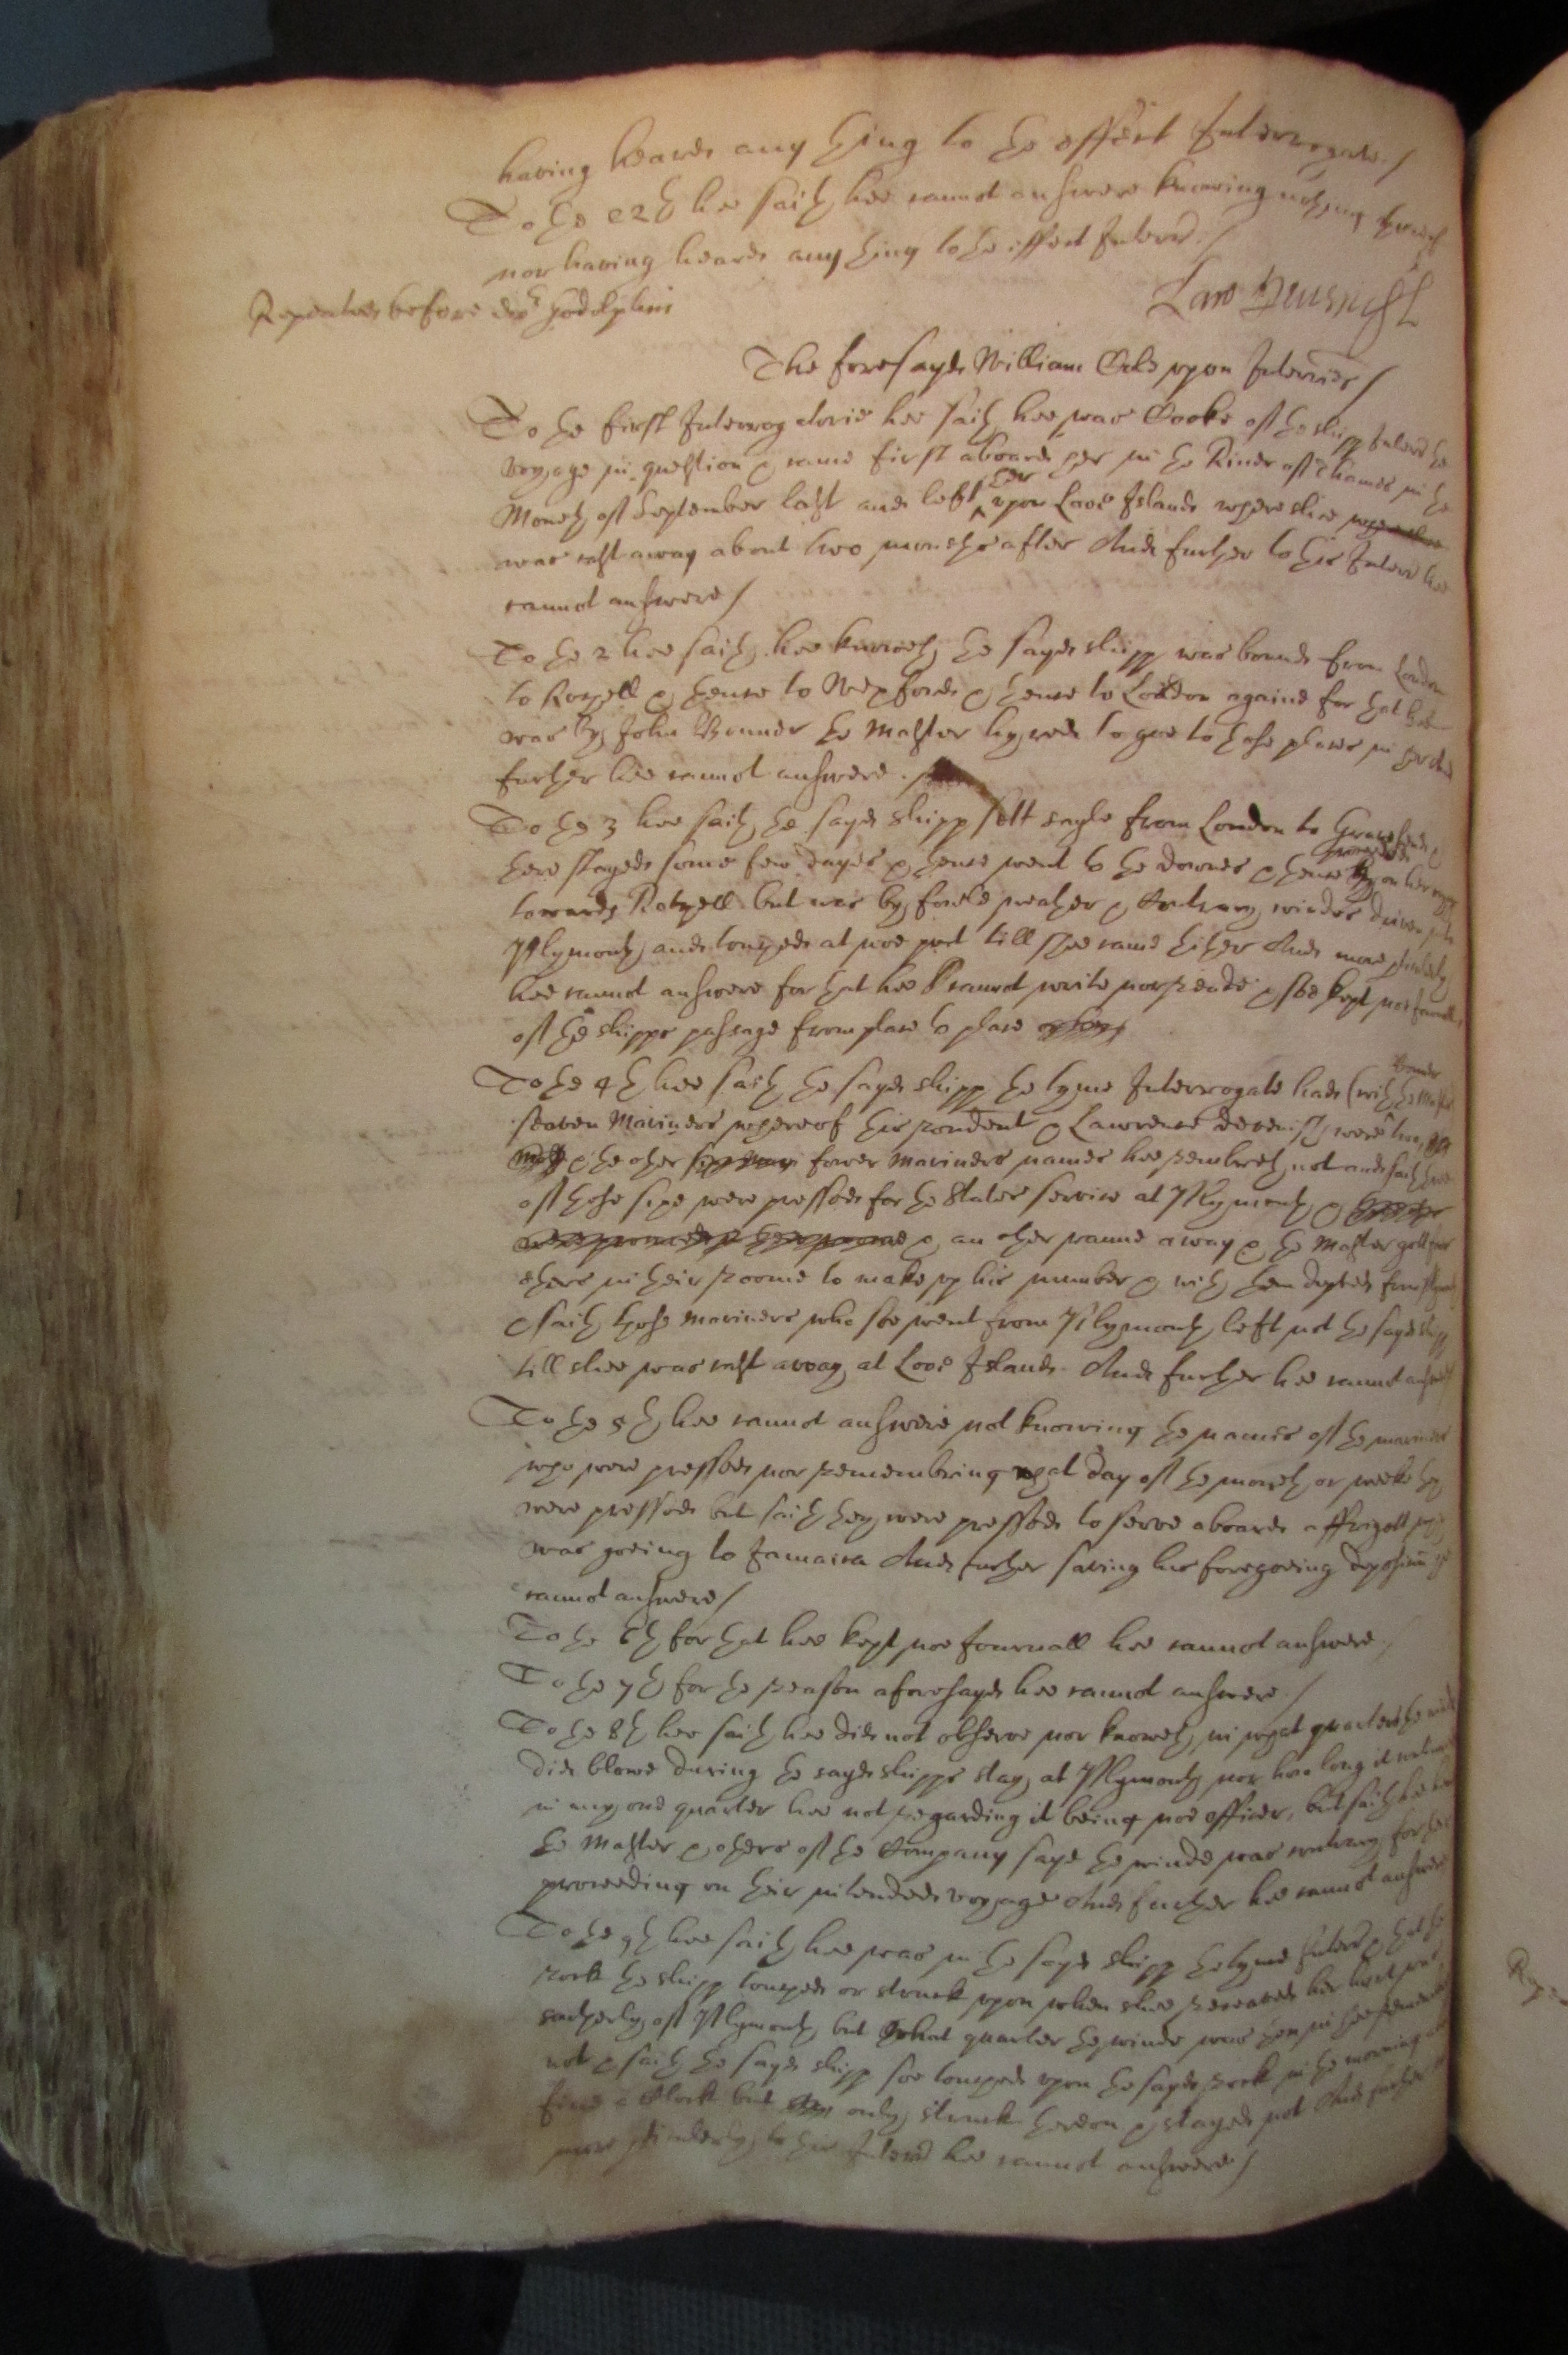 having heard any thing to the effect Interrogate./
To the 22th hee saith hee cannot answere knowing nothing thereof
nor having heard any thing to the effect Interrd./
Repeated before dor Godolphin
Law
The foresayd William Cubs upon Interries/
To the first Interrogatorie hee saith hee was Cooke of the shipp Interrd the
voyage in question & came first aboard her in the River of Thames in the
Moneth of September last and left her upon Looe Island where shee
was cast away about two moneths after And further to this Interr hee
cannot answere/
To the 2 hee saith hee knoweth the sayd shipp was bound from London
to Rochell & thence to Wexford & thence to London againe for that hee
was by John Bonner the Master hyred to goe to those places in her And
further hee cannot answere.
To the 3 hee saith the sayd shipp sett sayle from London to Gravesend &
there stayed some few dayes & thence went to the downes & thence proceeded on her voyage
towards Rochell but was by fowle weather & contrary windes driven into
Plymouth and touched at noe port till shee came thither And more particularly
hee cannot answere for that hee cannot write nor reade & soe kept noe Journall
of the shipps passage from place to place
To the 4th hee saith the sayd shipp the tyme Interrogate had (with Bonner the Master
seaven Mariners whereof this rendent & Lawrence were two,
& the other fower Mariners names hee remembreth not and saith three
of those sixe were pressed for the States service at Plymouth &
& an other runne away & the Master gott fower
others in their roome to make up his number & with them depted from Plymouth
& saith those Mariners who soe went from Plymouth left not the sayd shipp
till shee was cast away at Looe Island. And further hee cannot answere
To the 5th hee cannot answere not knowing the names of the mariners
who were pressed nor remembring what day of the moneth or weeke they
were pressed but saith they were pressed to serve aboard a ffrigott which
was goeing to Jamaica And further saving his foregoeing deposition hee
cannot answere/
To the 6th for that hee kept noe Journall hee cannot answere./
To the 7th for the reason aforesayd hee cannot answere./
To the 8th hee saith hee did not observe nor knoweth in what quarter the winde
did blowe during the sayd shipps stay at Plymouth nor how long it continued
in any one quarter hee not regarding it being noe officer, but saith hee heard
the Master & others of the Company saye the winde was contrary for their
proceeding on their intended voyage And further hee cannot answere
To the 9th hee saith hee was in the sayd shipp the tyme Interrd & that the
rock the shipp touched or struck upon when shee received her hurt was
southerly of Plymouth but what quarter the winde was then in hee remembreth
not & saith the sayd shipp soe touched upon the sayd rock in the morning about
five a Clock but only struck thereon & stayed not And further
more pticulerly to this Interrd hee cannot answere/